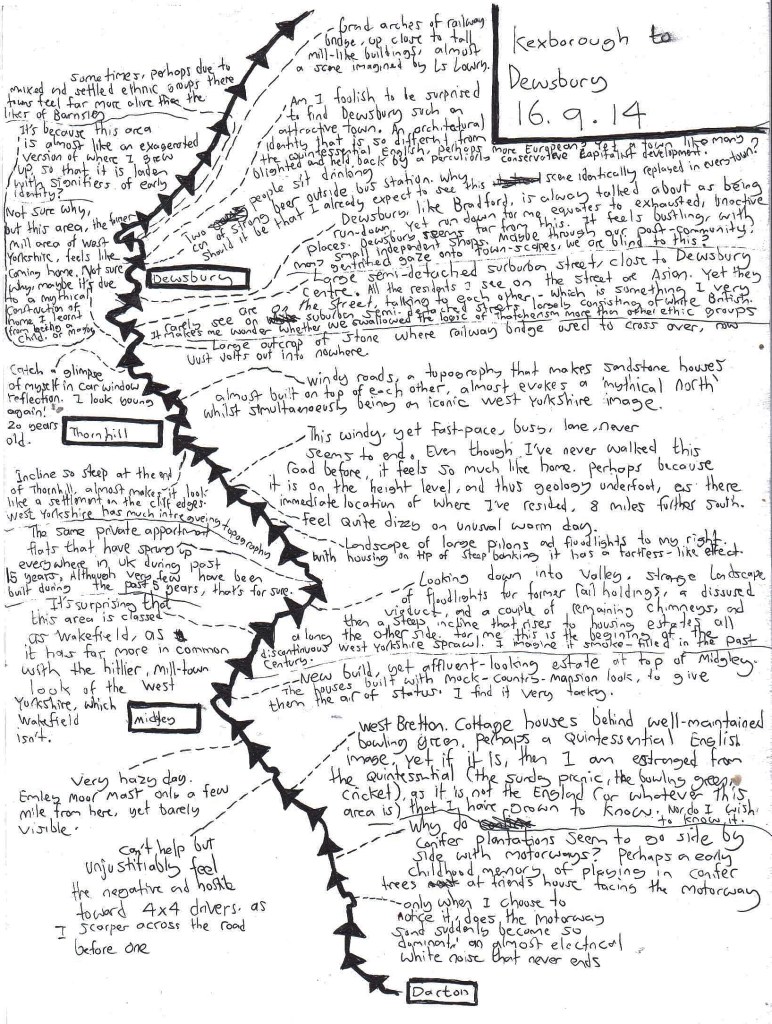 Kexborough to
Dewsbury
16.9.14
Grnd arches of railway
bridge, up close to tall
mill-like buildings, almost
a scene imagined by Ls Lowry.
Sometimes, perhaps due to
mixed and settled ethnic groups there
towns feel far more alive than the
likes of Barnsley
Am I foolish to be surprised
to find Dewsbury such an
attractive town. An architectural
identity that is so different from
the quintessential English, perhaps more European? Yet a town like many
blighted and held back by peculiarly conservative capitalist development.
It's because this area
is almost like an exagerated
version of where I grew
up, so that it is laden
with signifiers of early
identity?
Two people sit drinking
can of strong beer outside bus station. Why
should it be that I already expect to see this scene identically replayed in every town?
Not sure why,
but this area, the
mill area of west
Yorkshire, feels like
coming home. Not sure
why, maybe it's due
to a mythical
construction of
home I learn
from being a
child. or maybe
Dewsbury, like Bradford, is alway talked about as being
run-down. Yet run down for me equates to exhausted, unactive
places. Dewsbury seems far from this. It feels bustling, with
many small independent shops. Maybe through our post-community,
gentrified gaze onto town-scapes, we are blind to this?
Dewsbury
Large semi-detached surburban street, close to Dewsbury
Centre. All the residents I see on the street are Asian. Yet they
are on the street, talking to each other - which is something I very
rarely see on suburban semi-detached streets largely consisting of white British.
It makes me wonder whether we swallowed the logic of Thatcherism more than other ethic groups
Large outcrop of stone where railway bridge used to cross over, now
Just volts out into nowhere.
Catch a glimpse
of myself in car window
reflection. I look young
again!
20 years
old.
windy roads, a topography that makes sandstone houses
almost built on top of each other, almost evokes a 'mythical north'
whilst simultaneously being an iconic West Yorkshire image.
Thornhill
This windy, yet fast-pace, busy, lane, never
seems to end. Even though I've never walked this
road before, it feels so much like home. perhaps because
it is on the 'height level, and thus geology underfoot, as there
immediate location of where I've resided, 8 miles further south.
Incline so steep at the end
of Thornhill, almost makes it look
like a settlment on the cliff edges.
West Yorkshire has much intregueing topography
Feel quite dizzy on unusual warm day.
Landscape of large pilons and floodlights to my right.
with housing on tip of steep banking it has a fortress-like effect.
The same private appartment
flats that have sprung up
everywhere in uk during past
15 years, Although very few have been
built during the past 5 years, that's for sure.
Looking down into valley, strange landscape
of floodlights for former rail holdings, a disused
viaduct, and a couple of remaining chimneys, and
then a steep incline that rises to housing estates all
along the other side. for me this is the beginning of the
discontinuous West Yorkshire sprawl. I imagine it smoke-filled in the past
century.
It's surprising that
this area is classed
as Wakefield, as
it has far more in common
with the hillier, mill-town
look of the West
Yorkshire, which
Wakefield
isn't.
New build, yet affluent-looking estate at top of Midgley.
The houses built with mock-country-mansion look, to give
them the air of status. I find it very tacky.
Midgley
West Bretton. Cottage houses behind well-maintained
bowling green. Perhaps a Quintessential English
image, yet if it is, then I am estranged from
the quintessential (the sunday picnic, the bowling green,
cricket), as it is not the England (or whatever this
area is) that I have grown to know. Nor do I wish
to know it.
Very hazy day.
Emley Moor Mast only a few
mile from here, yet barely
visible.
Why do
Conifer plantations seem to go side by
side with motorways? Perhaps a early
childhood memory of playing in confer
trees at friends house facing the motorway
Can't help but
unjustifiably feel
the negative and hostile
toward 4x4 drivers, as
I scarper across the road
before one
only when I choose to
notice it, does the motorway
sound suddenly become so
dominant; an almost electrical
white noise that never ends
Darton